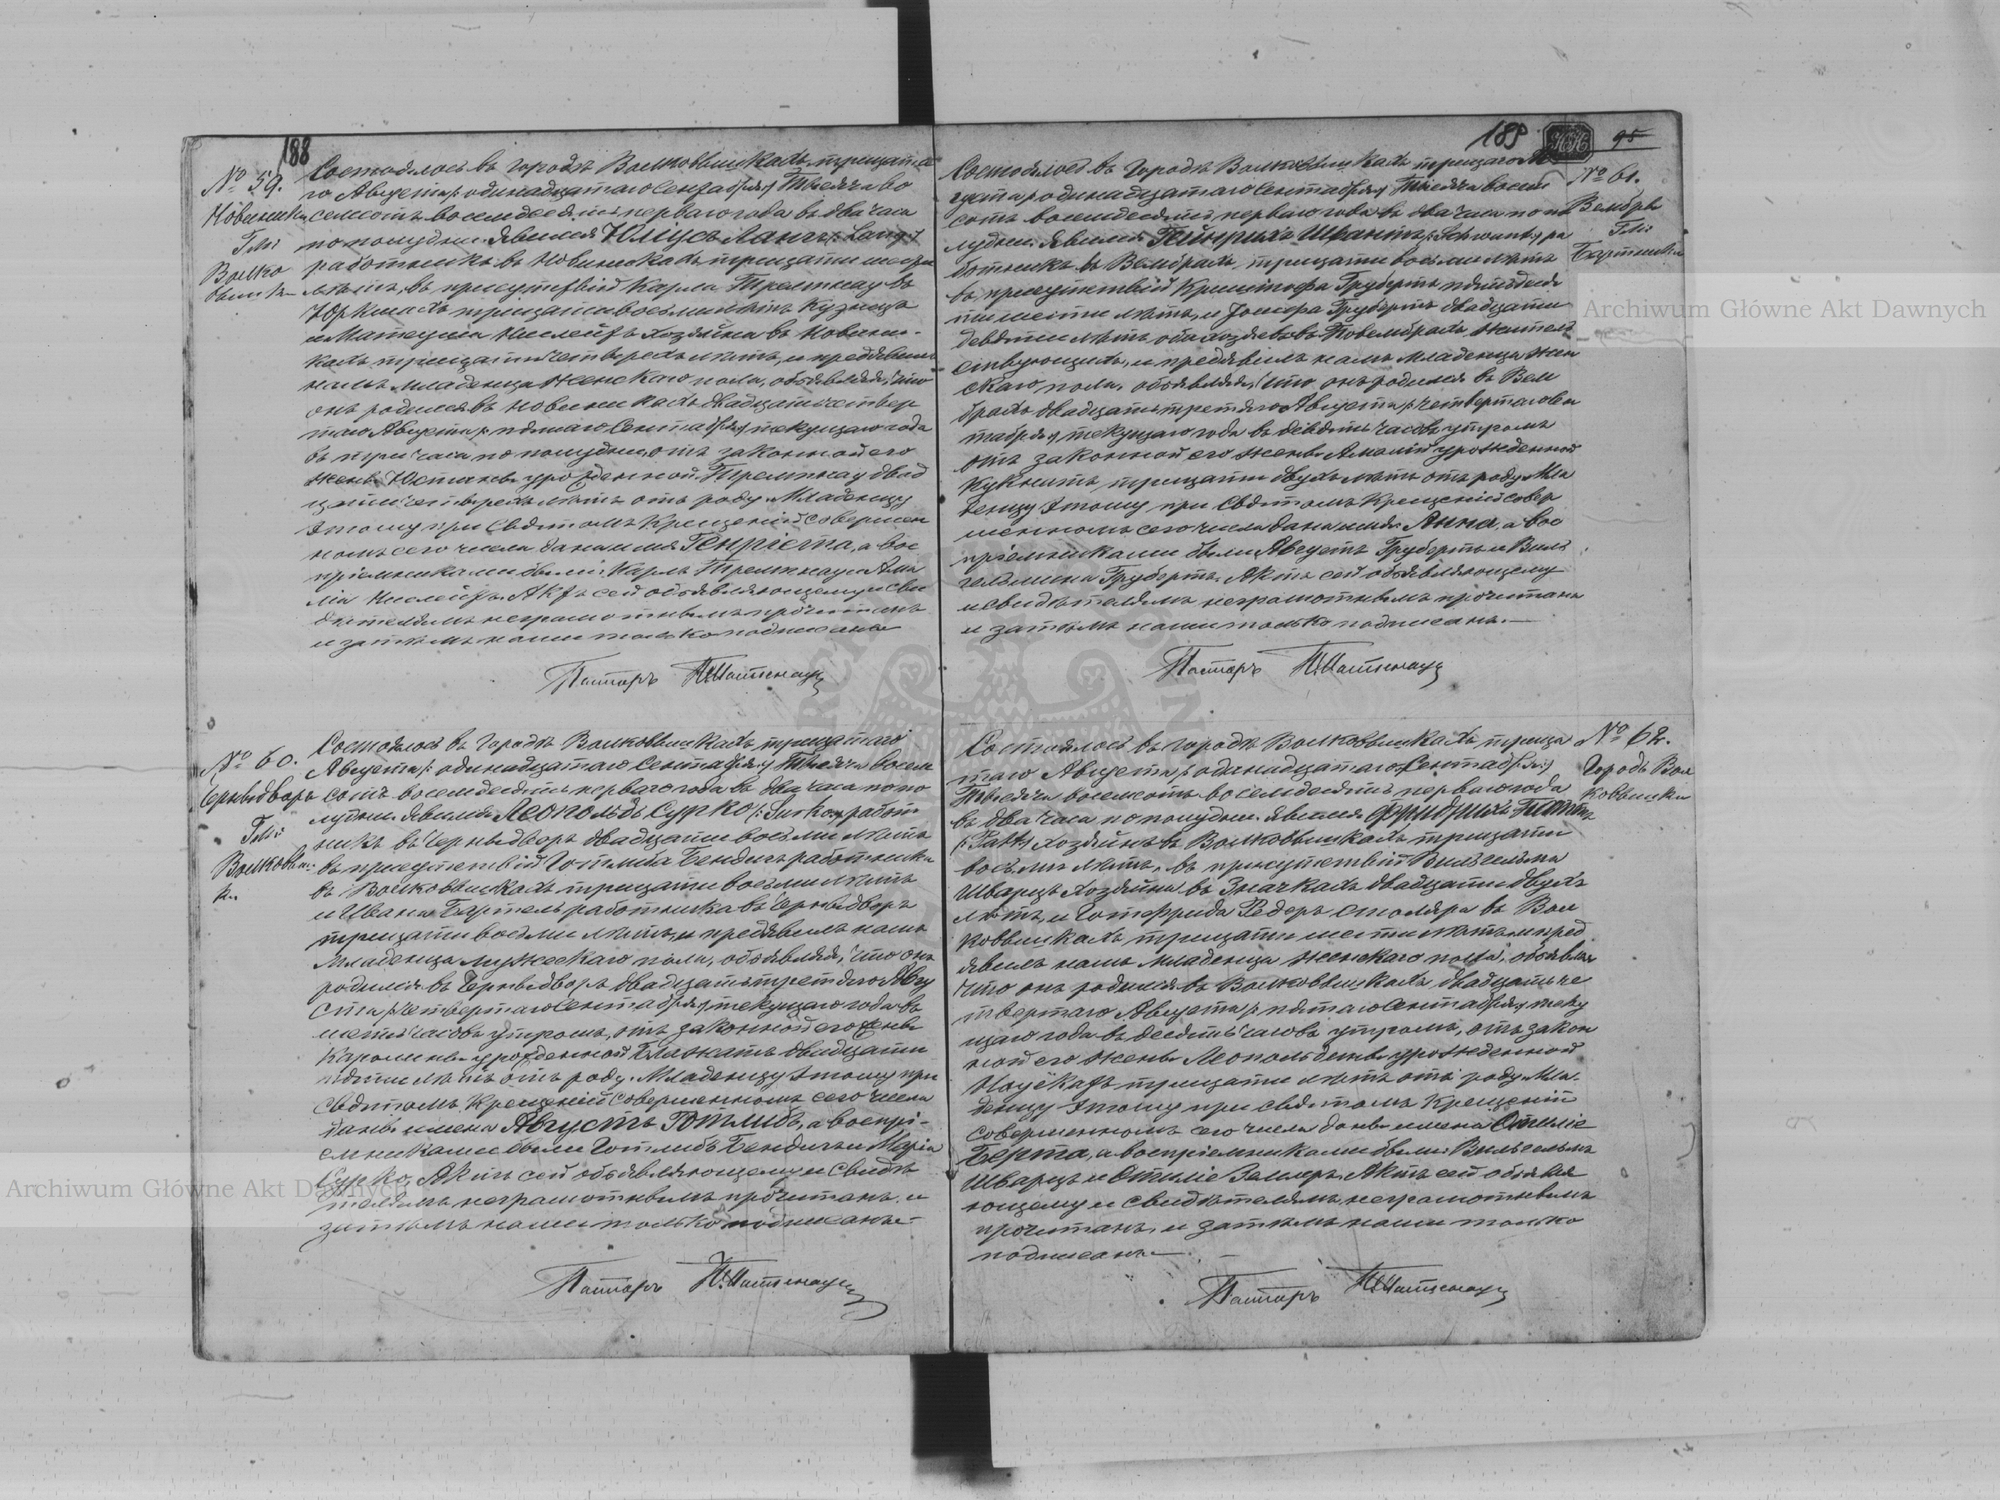 188
№ 59.
Новиники
Гм:
Волко
вышки
Состоялось въ городѣ Волковышкахъ, тридцата
го Августа /: одинадцатаго Сентября :/ Тысяча во
семсотъ восемдесятъ перваго года въ два часа
по полудни. Явился Юліусъ Лангъ /: Lang :/
работникъ въ Новиникахъ тридцати шести
лѣтъ, въ присутствіи Карла Тремпнау въ
тридцати восьми лѣтъ кузнеца
и хозяина въ Новини-
кахъ тридцати четырехъ лѣтъ, и предъявилъ
намъ младенца женскаго пола, объявляя, что
онъ родился въ Новиникахъ двадцать четвер
таго Августа /: пятаго Сентября :/ текущаго года
въ три часа по полудни, отъ законной его
жены Юстины урожденной Тремпнау двад
цати четырехъ лѣтъ отъ роду. Младенцу
этому при Святомъ Крещеніи совершен
номъ сего числа дано имя Генріета, а вос
пріемниками были: Карлъ Тремпнау и Ама
лія Актъ сей объявляющему и сви
дѣтелямъ неграмотнымъ прочитанъ
и затѣмъ нами только подписанъ
Пасторъ
№ 60.
Черныдворъ
Гм:
Волковыш-
ки
Состоялось въ городѣ Волковышкахъ, тридцатаго
Августа /: одинадцатаго Сентября :/ Тысяча восем
сотъ восемдесятъ перваго года въ два часа по по
лудни. Явился Леопольдъ Сурко /: Surko :/ работ
никъ въ Черныдворѣ двадцати восьми лѣтъ
въ присутствіи Готлиба Бендигъ работника
въ Волковышкахъ тридцати восьми лѣтъ
и Ивана Бартель работника въ Черныдворѣ
тридцати восьми лѣтъ, и предъявилъ намъ
младенца мужескаго пола, объявляя, что онъ
родился въ Черныдворѣ двадцать третьяго Авгу
ста /: четвертаго Сентября :/ текущаго года въ
шесть часовъ утромъ, отъ законной его жены
Каролины урожденной двадцати
пяти лѣтъ отъ роду. Младенцу этому при
Святомъ Крещеніи совершенномъ сего числа
даны имена Августъ Готлибъ, а воспрі-
емниками были Готлибъ Бендигъ и Марія
Сурко. Актъ сей объявляющему и свидѣ
телямъ неграмотнымъ прочитанъ, и
затѣмъ нами только подписанъ.
Пасторъ
189
95
№ 61.
Вембры
Гм:
Состоялось въ Городѣ Волковышкахъ тридцатаго Ав
густа /: одинадцатаго Сентября :/ Тысяча восем
сотъ восемдесятъ перваго года въ два часа по по
лудни. Явился Гейнрихъ Швантъ /: Schwant :/ ра
ботникъ въ Вембрахъ, тридцати восьми лѣтъ
въ присутствіи Криштофа Грубертъ пятьдеся
ти шести лѣтъ, и Грубертъ двадцати
девяти лѣтъ, оба хозяевовъ въ Повембрахъ житель
ствующихъ, и предъявилъ намъ младенца жен
скаго пола, объявляя, что онъ родился въ Вем
брахъ двадцать третьяго Августа /: четвертаго Сен
тября :/ текущаго года въ девять часовъ утромъ
отъ законной его жены Амаліи урожденной
Кукнатъ, тридцати двухъ лѣтъ отъ роду. Мла
денцу этому при Святомъ Крещеніи совер
шенномъ сего числа дано имя Анна, а вос
пріемниками были Августъ Грубертъ и Виль
гельмина Грубертъ. Актъ сей объявляющему
и свидѣтелямъ неграмотнымъ прочитанъ
и затѣмъ нами только подписанъ.
Пасторъ
№ 62.
Городъ Вол
ковышки
Состоялось въ городѣ Волковышкахъ тридца
таго Августа /: одинадцатаго Сентября :/
Тысяча восемсотъ восемдесятъ перваго года
въ два часа по полудни. Явился Фридрихъ
хозяинъ въ Волковышкахъ тридцати
восьми лѣтъ, въ присутствіи Вильгельма
Шварцъ хозяина въ Значкахъ двадцати двухъ
лѣтъ, и Готфрида Редеръ столяра въ Вол
ковышкахъ тридцати шести лѣтъ, и пред
явилъ намъ младенца женскаго пола, объявляя
что онъ родился въ Волковышкахъ двадцать че
твертаго Августа /: пятаго Сентября :/ теку
щаго года въ десять часовъ утромъ, отъ закон
ной его жены Леопольдины урожденной
тридцати лѣтъ отъ роду. Мла-
денцу этому при святомъ Крещеніи
совершенномъ сего числа даны имена Отиліе
Берта, а воспріемниками были Вильгельмъ
Шварцъ и Отиліе Актъ сей объявля
ющему и свидѣтелямъ неграмотнымъ
прочитанъ, и затѣмъ нами только
подписанъ.
Пасторъ
Archiwum Główne Akt Dawnych
Archiwum Główne Akt Dawnych